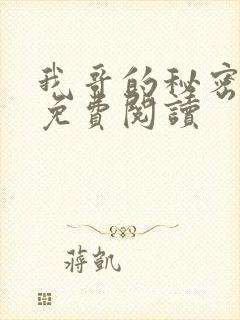 我哥的秘密
免費閱讀
蔣凱